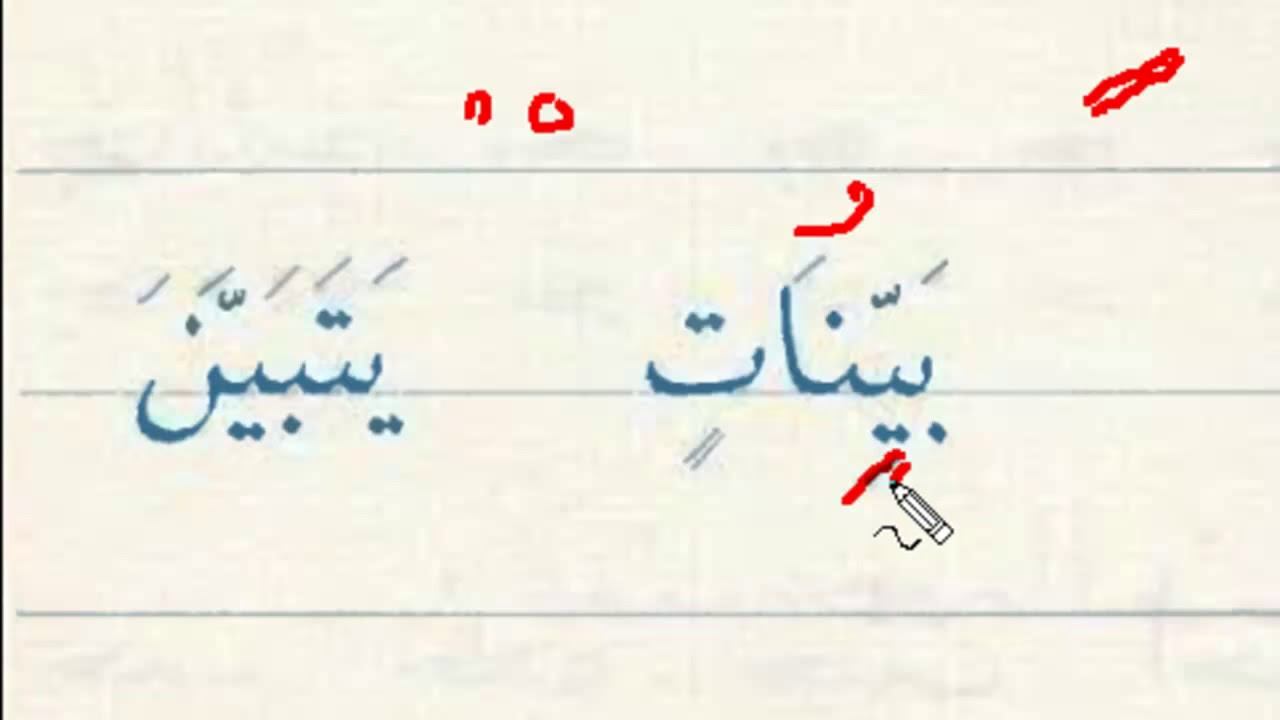 بَيِّنَاتٍ يَتَبَيَّنَ